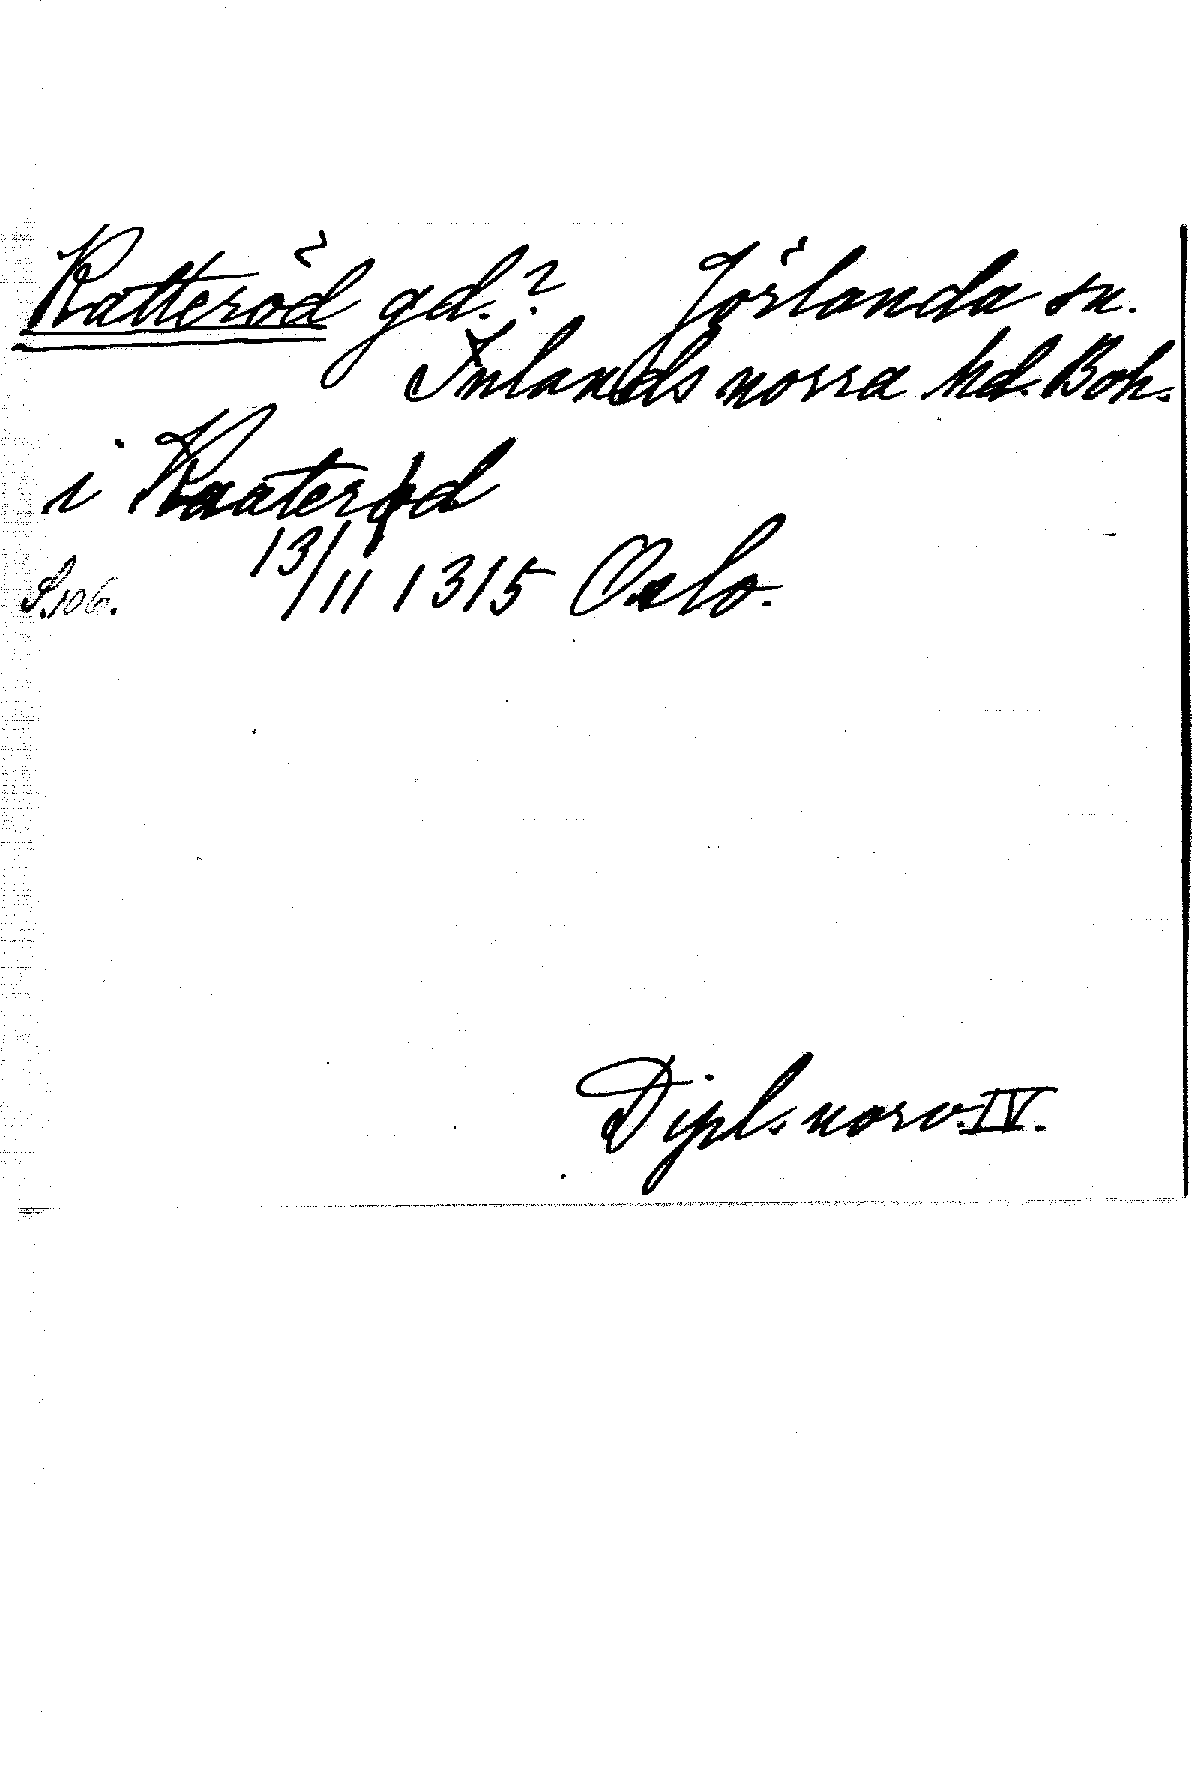 Katteröd gd.? Jörlanda sn.
Inlands norra hd. Boh.
i Kaaterød
S. 106. 13/11 1315 Oslo.
Dipl. norv. IV.